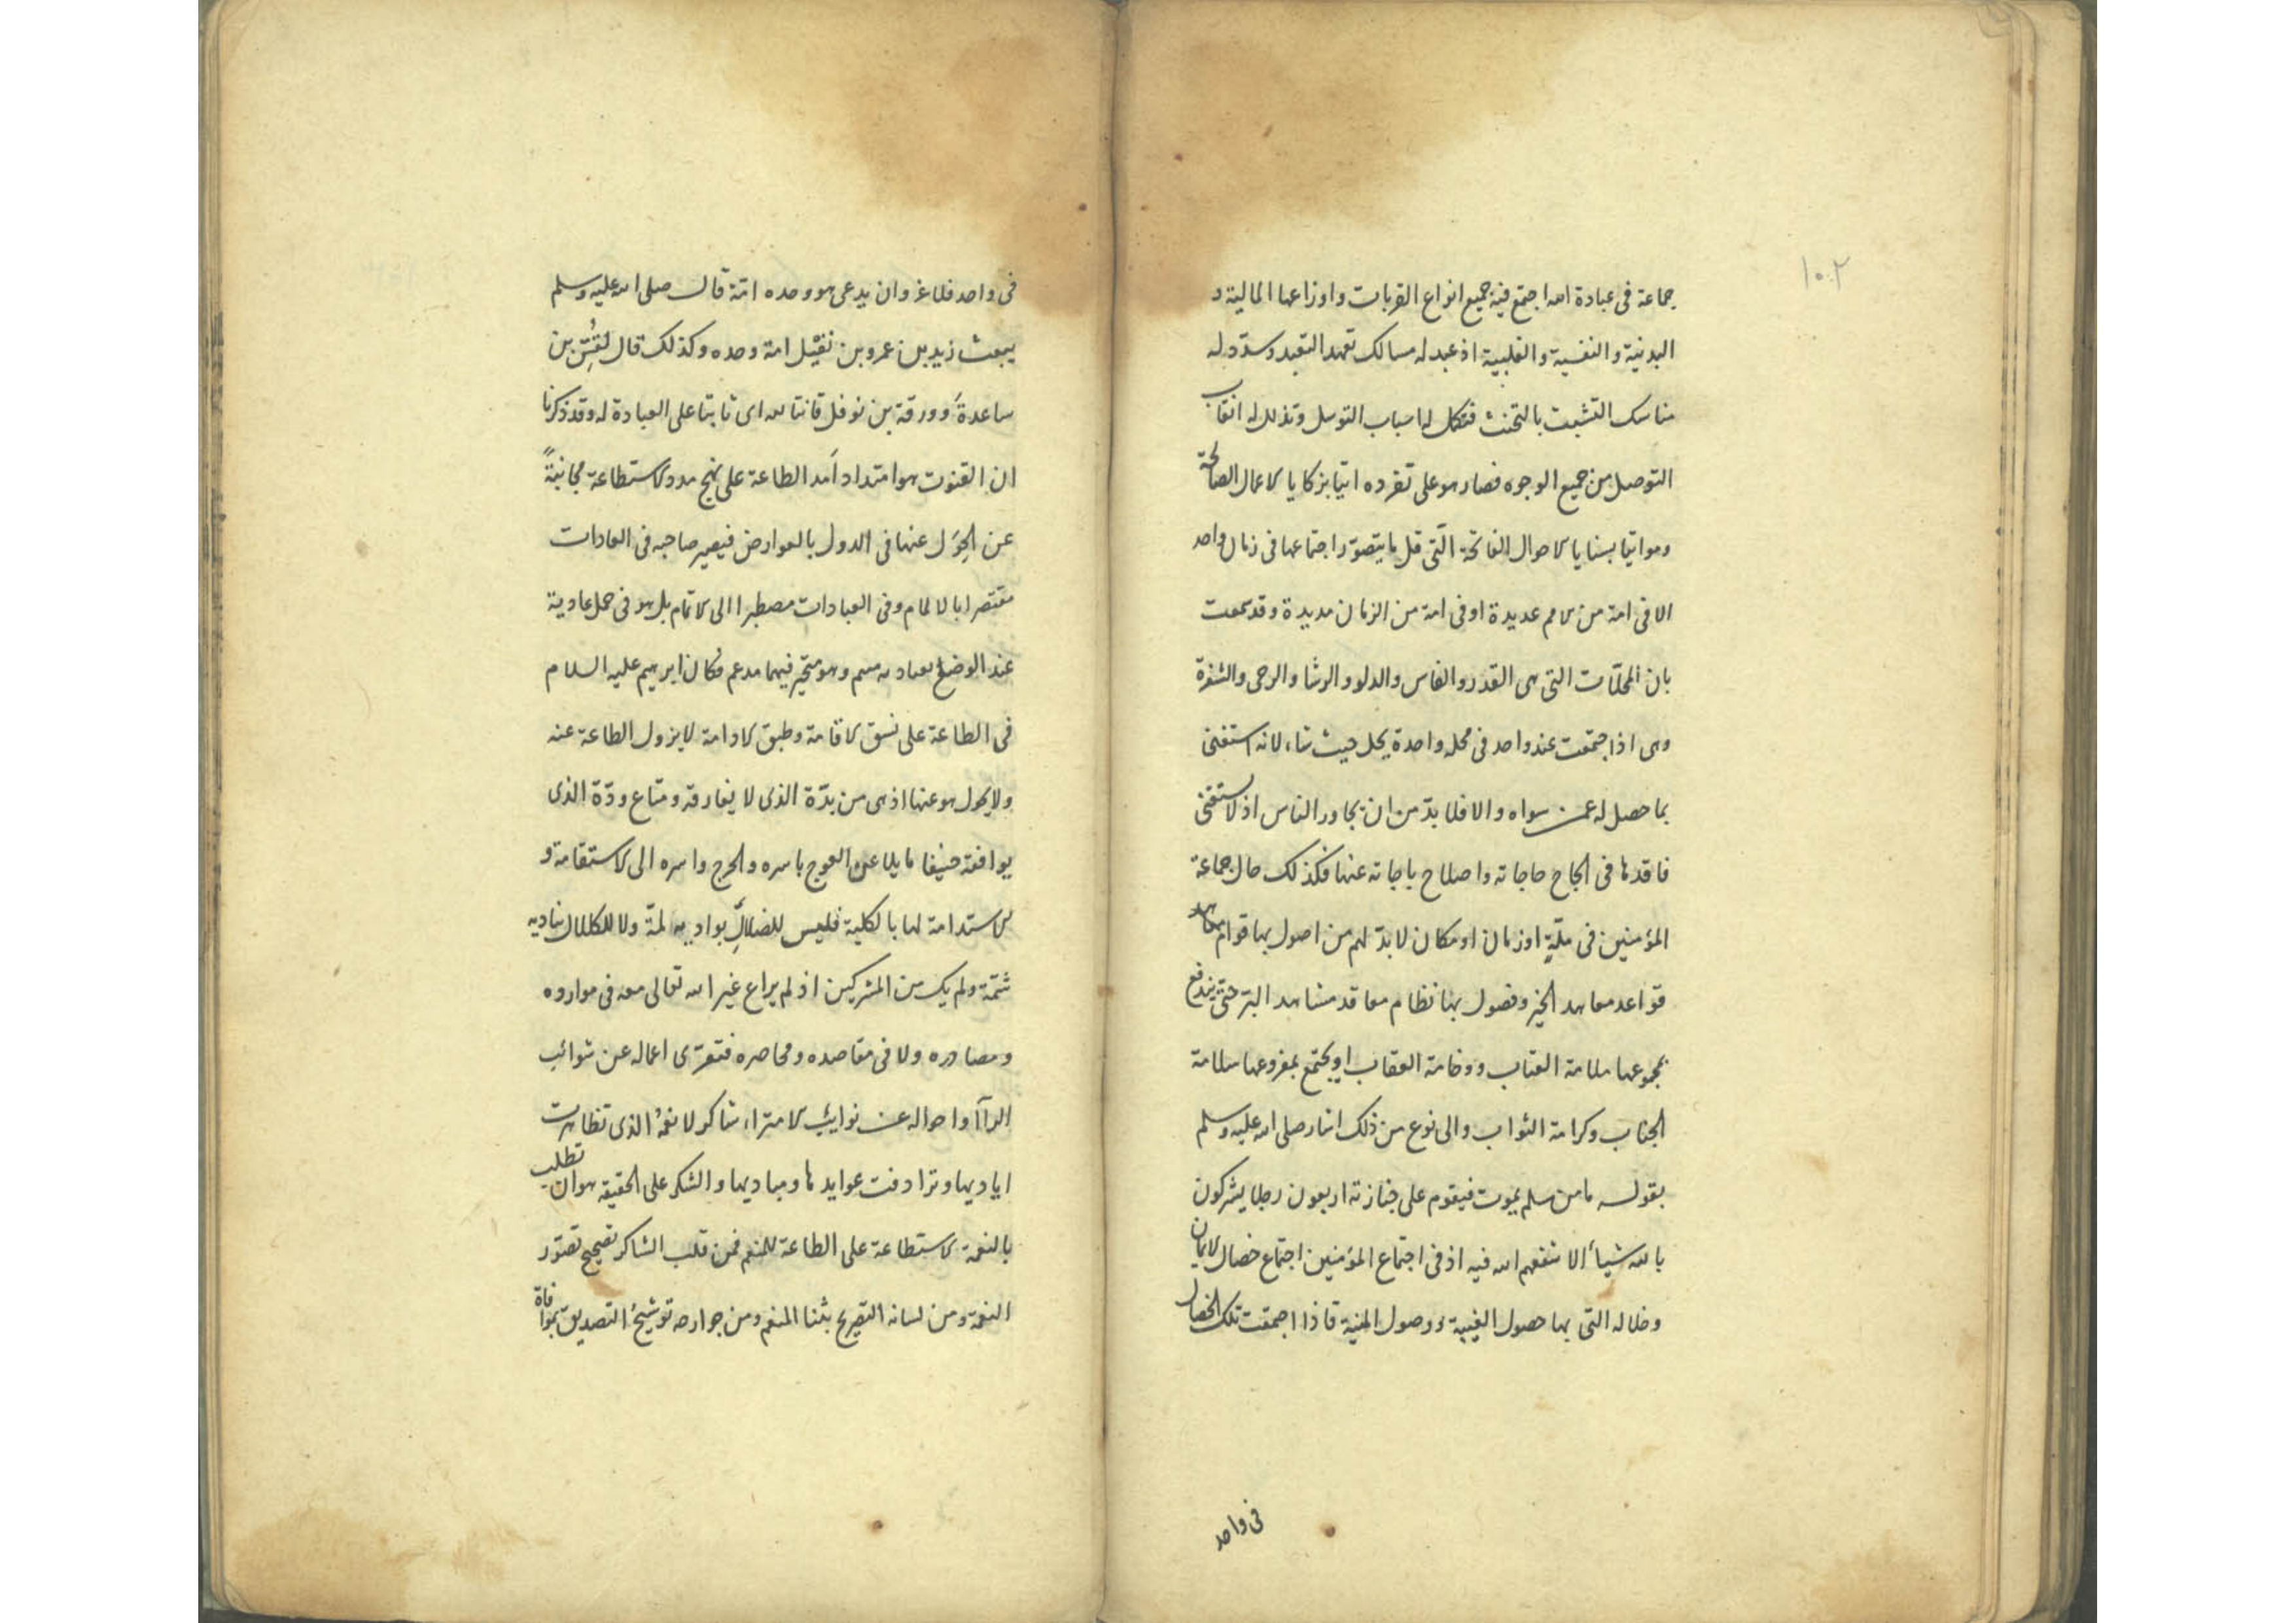 ١٠٢
جماعة فى عبادة الله اجتمع فيه جميع انواع القربات واوزاعها المالية و
البدنية والنفسية والقلبية اذ عبد له مسالك تعهد التعبد وسدّد له
مناسك التشبث بالتحنث فتكمل له اسباب التوسل وتذلل له انقاب
التوصل من جميع الوجوه فصار هو على تفرده اتيا بزكايا الاعمال الصالحة
ومواتيا بسنايا الاحوال الفاتحة الّتى قل ما يتصوّر اجتماعها فى زمان واحد
الا فى امة من الامم عديدة او فى امة من الزمان مديدة وقد سمعت
بان المحلّات التى هى القدر والفاس والدلو والرشا والرحى والشفرة
وهى اذا اجتمعت عند واحد فى محله واحدة يحل حيث شاء لانه استغنى
بما حصل له عمن سواه والا فلا بدّ من ان يجاور الناس اذ لا يستغنى
فاقدها فى انجاح حاجاته واصلاح باجاته عنها فكذلك حال جماعة
المؤمنين فى ملّةٍ او زمان او مكان لا بدّ لهم من اصول بها قوام
قواعد معاهد الخير وفصول بها نظام معاقد مشاهد البر حتى يندفع
بمجموعها ملامة العتاب ووخامة العقاب او يجتمع بمفروعها سلامة
الجناب وكرامة الثواب والى نوع من ذلك اشار صلى الله عليه وسلم
بقوله ما من مسلم يموت فيقوم على جنازته اربعون رجلا يشركون
بالله شيأ الا شفعهم الله فيه اذ فى اجتماع المؤمنين اجتماع خصال الايمان
وخلاله التى بها حصول الغيبة ووصول المنية فاذا اجمعت تلك الخصال
فى واحد
فى واحد فلا غروان يدعى هو وحده امّة قال صلى الله عليه وسلم
يبعث زيد بن عمرو بن نفيل امة وحده وكذلك قال لقسّ بن
ساعدة وورقة بن نوفل قانتا لله اى ثابتا على العبادة له وقد ذكرنا
ان القنوت هو امتداد أمد الطاعة على نهج مدد الاستطاعة مجانبةً
عن الحِوَل عنها فى الدول بالعوارض فيصير صاحبه فى العادات
مقتصرا بالالمام وفى العبادات مصطبرا الى الاتمام بل هو فى حمل عادية
عند الوضع وهو متحيّر فيهما مدعم فكان ابرهيم عليه السلام
فى الطاعة على نسق الاقامة وطبق الادامة لا يزول الطاعة عنه
ولا يحول هو عنها اذ هى من بدّه الذى لا يفارقه ومتاع ودّه الذى
يوافقه حنيفا مايلا عن العوج باسره والحرج واسره الى الاستقامة و
الاستدامة لها بالكلية فليس للضلال بواديه لمّة ولا للكلال بناديه
شمّة ولم يك من المشركين اذ لم يراع غير الله تعالى معه فى موارده
ومصادره ولا فى مقاصده ومحاصره فتعرّى اعماله عن شوائب
الرآا واحواله عن نوايب الامتراء شاكر لانعمه الذى تظاهرت
اياديها وترادفت عوايدها ومباديها والشكر على الحقيقه هو ان تطلب
بالنعمة الاستطاعة على الطاعة للمنعم فمن قلب الشاكر تصحيح تصوّر
النعمة ومن لسانه التصريح بثنا المنعم ومن جوارحه توشيح التصديق بموافاة